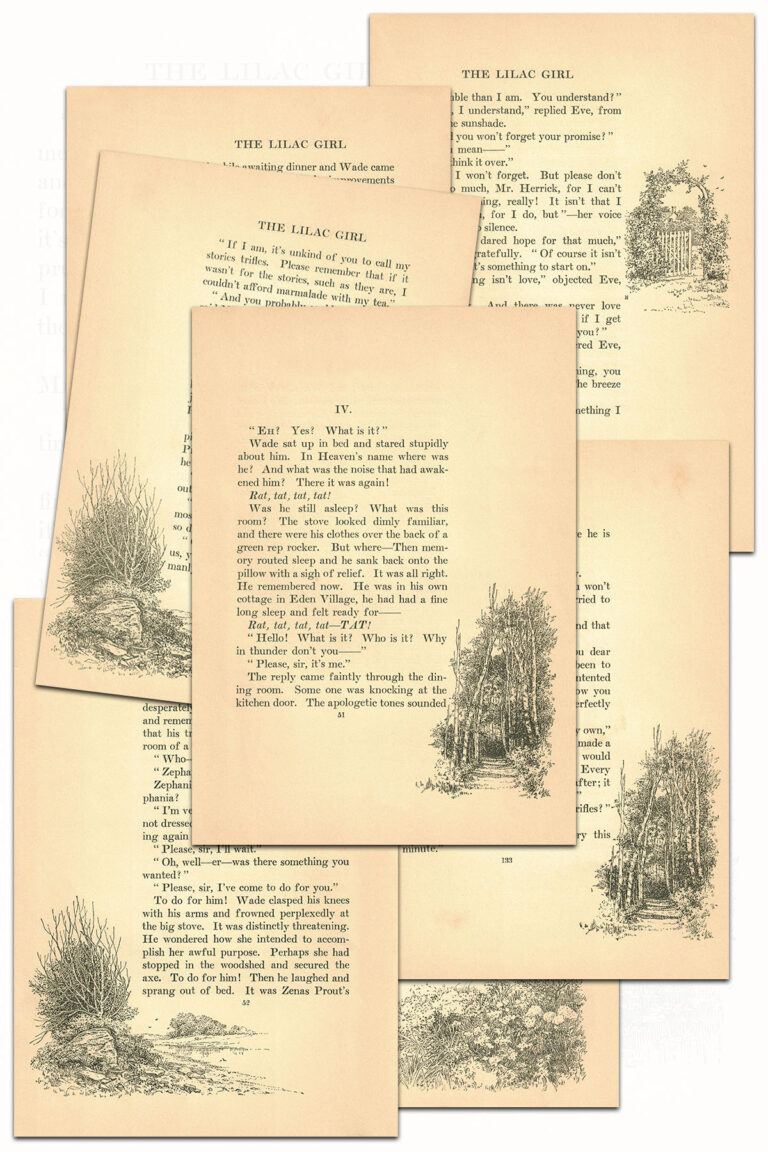 THE LILAC GIRL
than I am. You understand?"
I understand," replied Eve, from
sunshade.
you won't forget your promise?"
mean——"
think it over."
I won't forget. But please don't
much, Mr. Herrick, for I can't
really! It isn't that I
for I do, but"—her voice
silence.
dared hope for that much,"
gratefully. "Of course it isn't
it's something to start on."
isn't love," objected Eve,
And there was never love
if I get
you?"
Eve,
you
the breeze
I
THE LILAC GIRL
while awaiting dinner and Wade came
improvements
THE LILAC GIRL
"If I am, it's unkind of you to call my
stories trifles. Please remember that if it
wasn't for the stories, such as they are, I
couldn't afford marmalade with my tea."
"And you probably
he
out
most
so d
us, y
manl
IV.
"Eh? Yes? What is it?"
Wade sat up in bed and stared stupidly
about him. In Heaven's name where was
he? And what was the noise that had awak-
ened him? There it was again!
Rat, tat, tat, tat!
Was he still asleep? What was this
room? The stove looked dimly familiar,
and there were his clothes over the back of a
green rep rocker. But where—Then mem-
ory routed sleep and he sank back onto the
pillow with a sigh of relief. It was all right.
He remembered now. He was in his own
cottage in Eden Village, he had had a fine
long sleep and felt ready for——
Rat, tat, tat, tat—TAT!
"Hello! What is it? Who is it? Why
in thunder don't you——"
"Please, sir, it's me."
The reply came faintly through the din-
ing room. Some one was knocking at the
kitchen door. The apologetic tones sounded
51
he is
won't
tried to
and that
dear
been to
you
perfectly
own,"
made a
would
Every
after; it
trifles?"
this
minute.
133
desperately
and remem
that his tr
room of a
"Who—
"Zepha
Zephani
phania?
"I'm ve
not dressed
ing again
"Please, sir, I'll wait."
"Oh, well—er—was there something you
wanted?"
"Please, sir, I've come to do for you."
To do for him! Wade clasped his knees
with his arms and frowned perplexedly at
the big stove. It was distinctly threatening.
He wondered how she intended to accom-
plish her awful purpose. Perhaps she had
stopped in the woodshed and secured the
axe. To do for him! Then he laughed and
sprang out of bed. It was Zenas Prout's
52